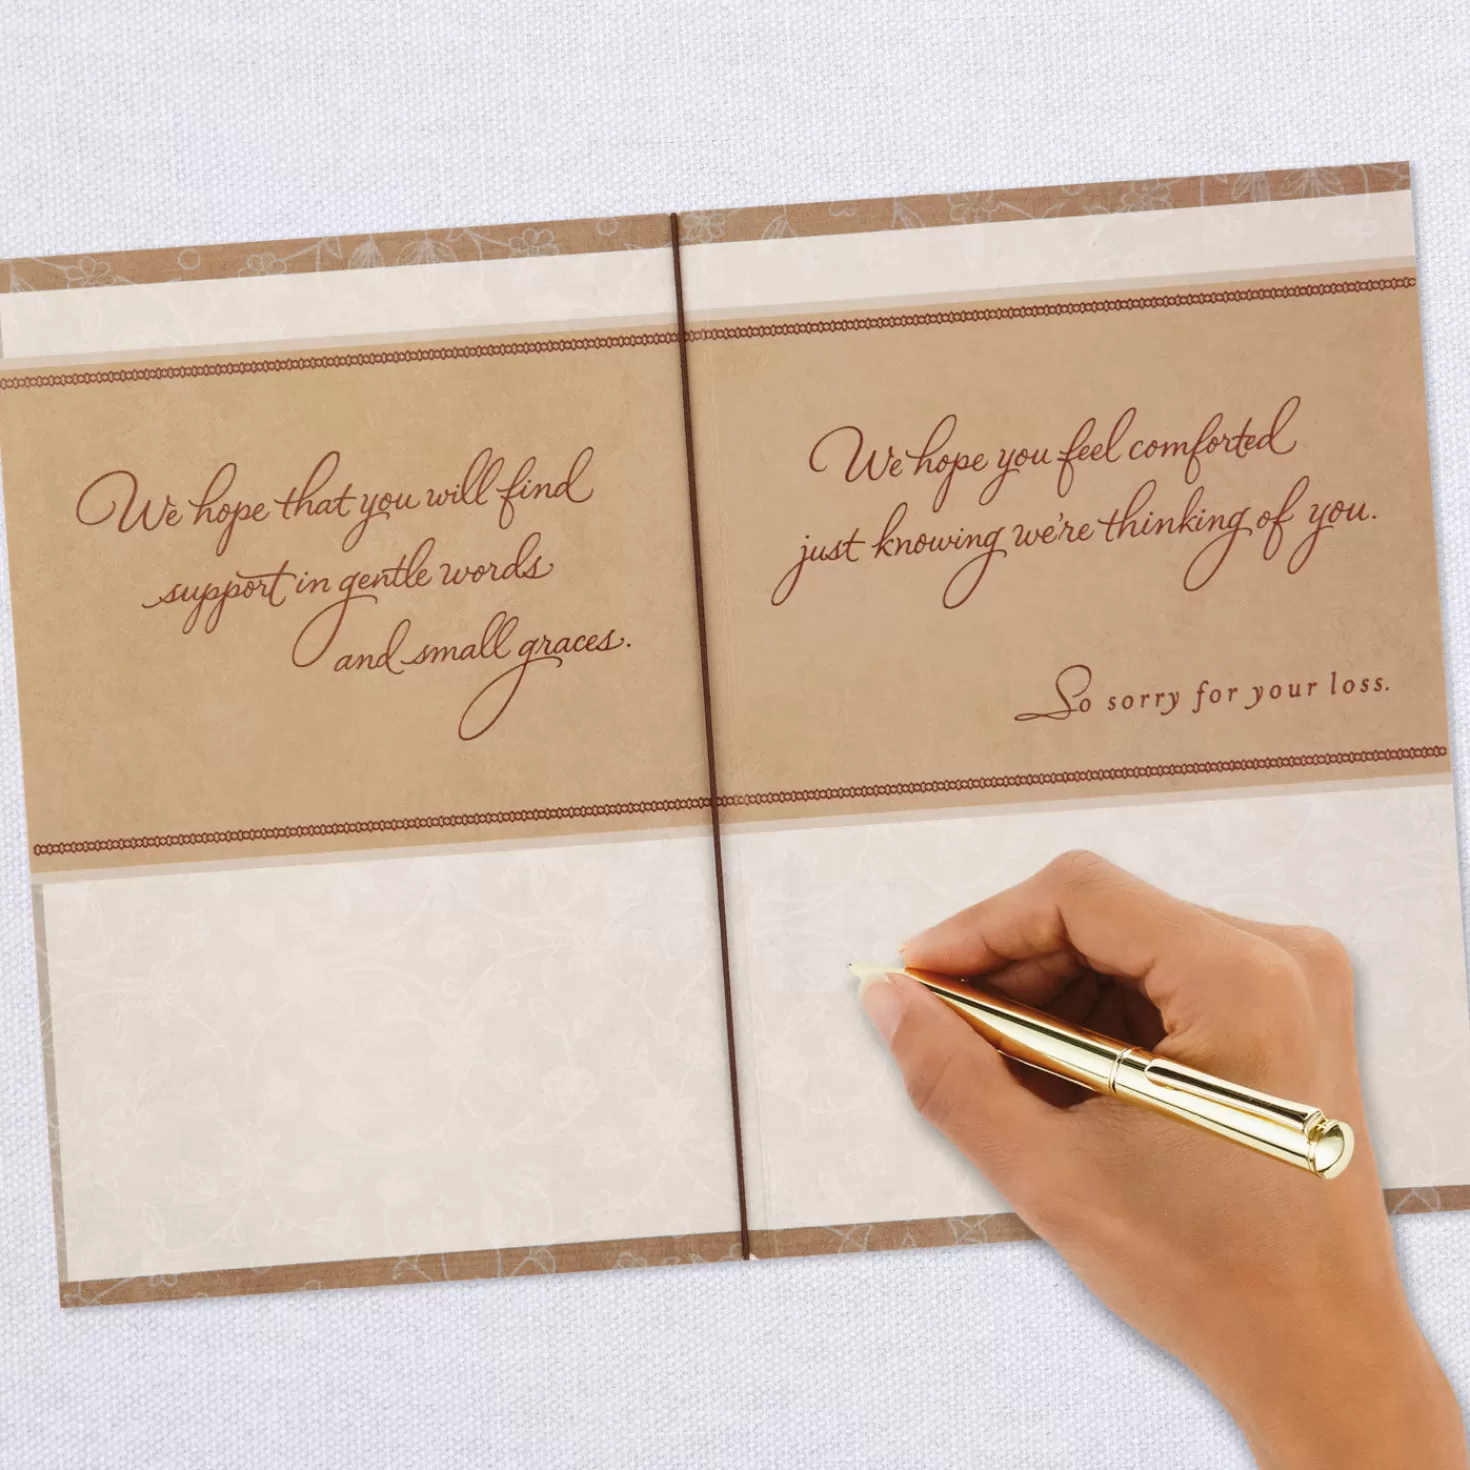 We hope that you will find
support in gentle words
and small graces.
We hope you feel comforted
just knowing we're thinking of you.
So sorry for your loss.